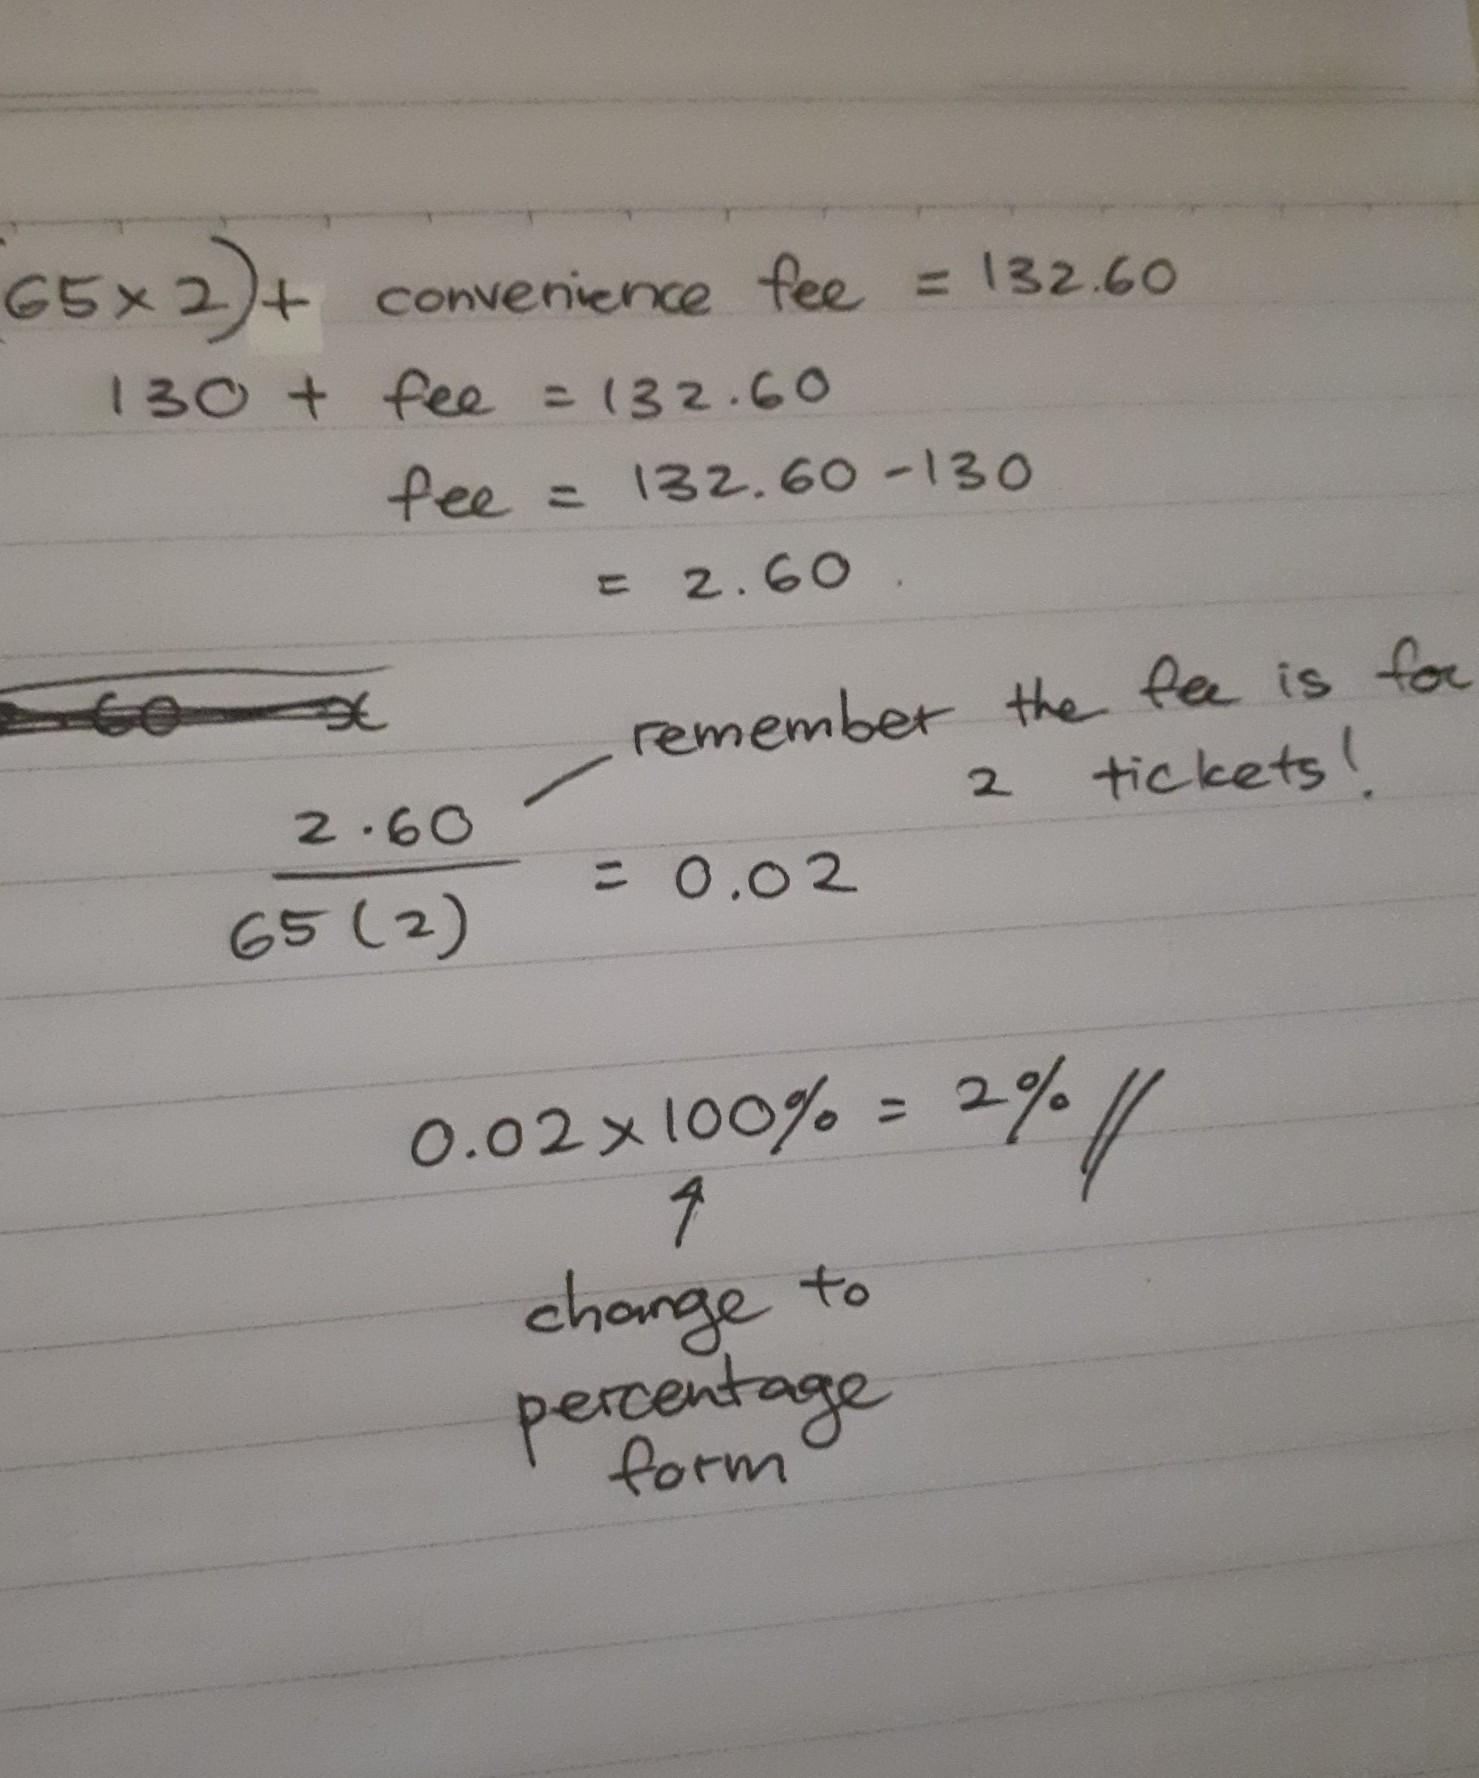 (65 x 2) + convenience fee = 132.60
130 + fee = 132.60
fee = 132.60 - 130
= 2.60
60 x
remember the fee is for
2 tickets!
2.60
65 (2)
= 0.02
0.02 x 100% = 2% //
change to
percentage
form